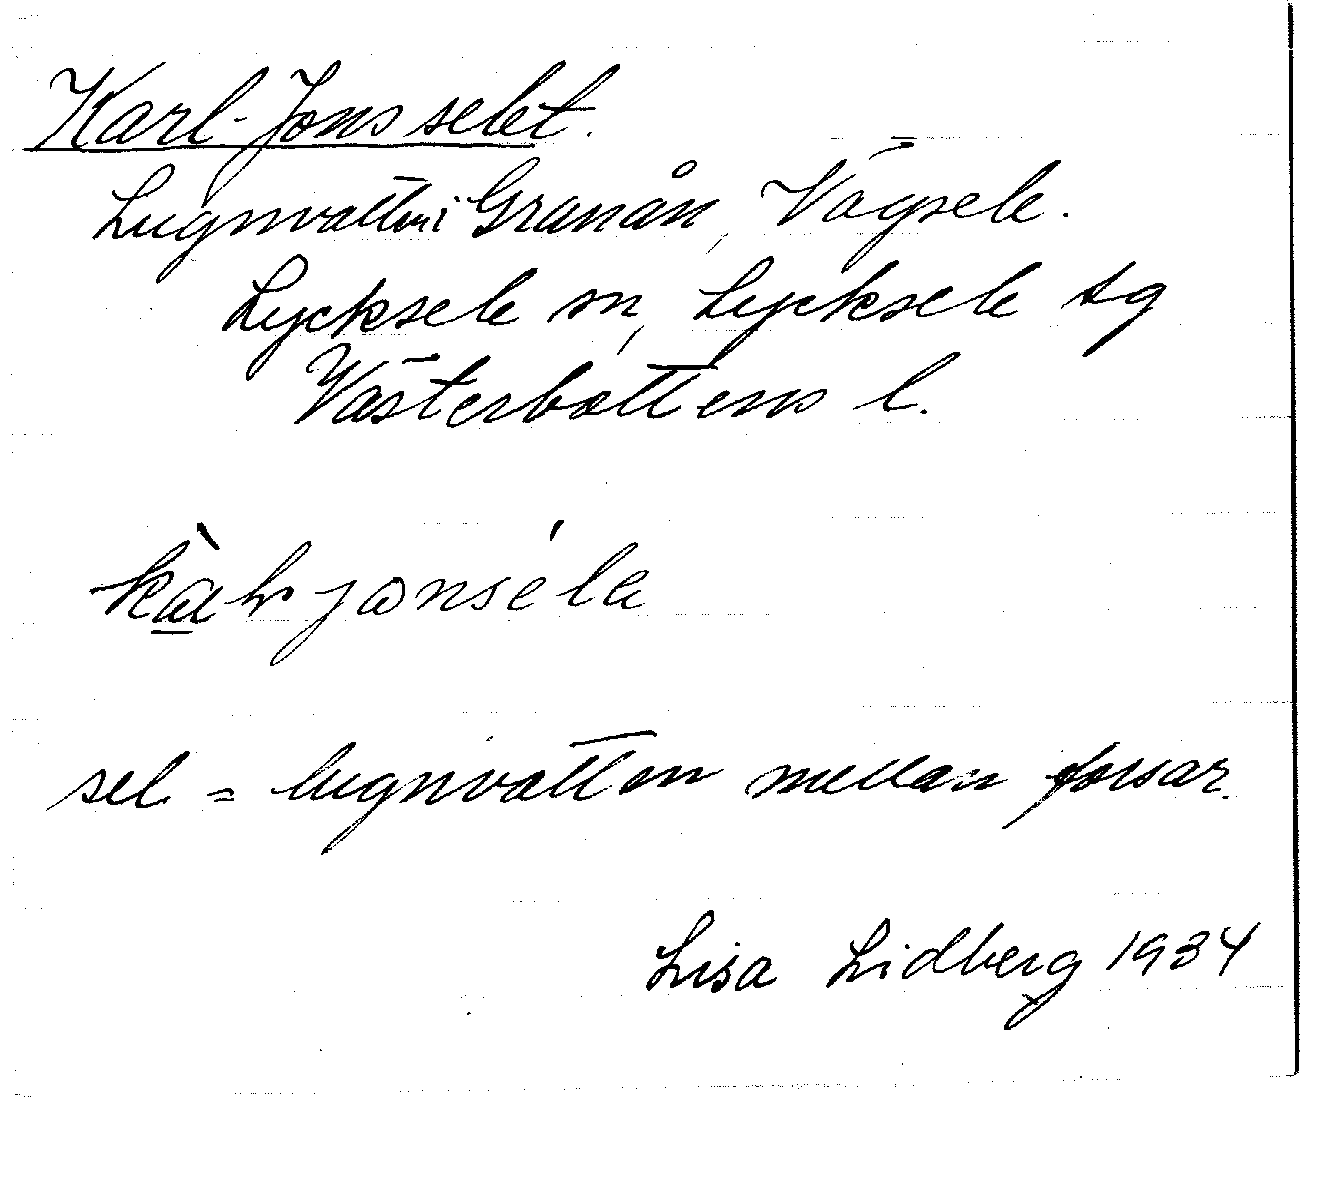 Karl-Jonsselet.
Lugnvatten i Granån, Vägsele.
Lycksele sn, Lycksele tg
Västerbottens l.
sel = lugnvatten mellan forsar.
Lisa Lidberg 1934